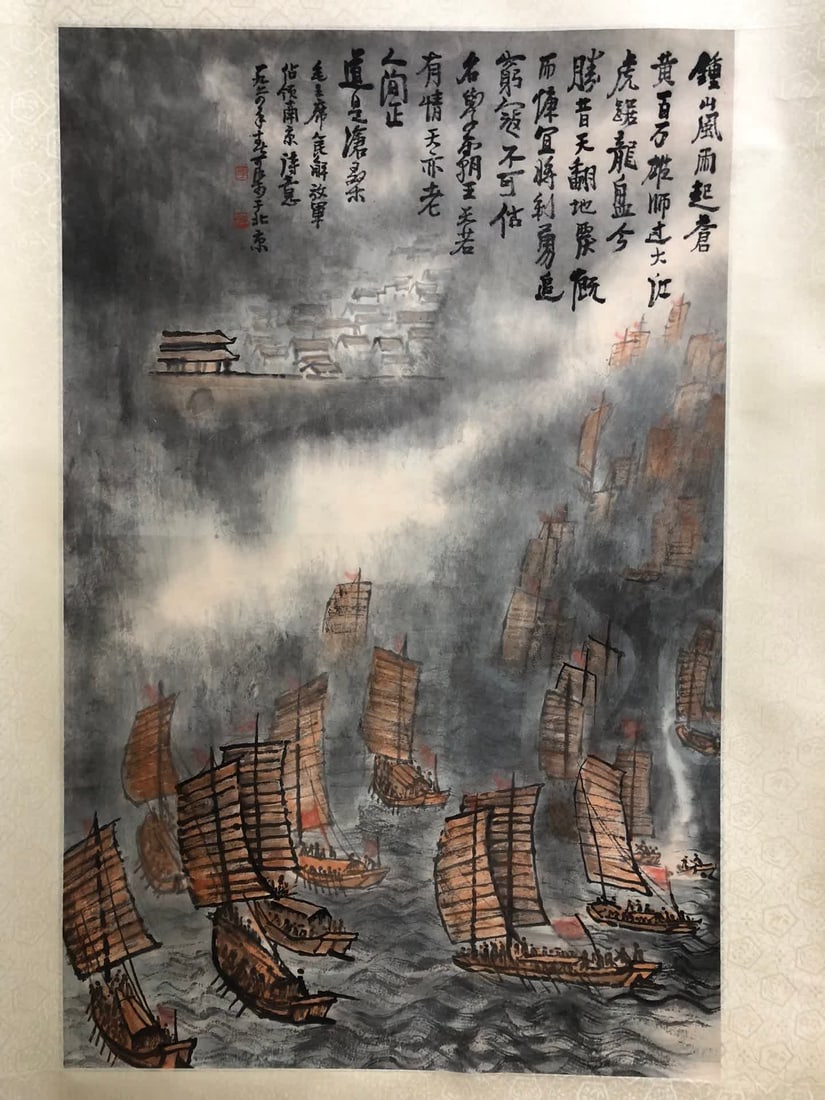 鍾山風雨起蒼
黄百万雄師过大江
虎踞龍盘今
勝昔天翻地覆慨
而慷宜將剩勇追
窮寇不可沽
名學霸王天若
有情天亦老
人间正
道是滄桑
毛主席人民解放軍
佔領南京詩意
一九六四年 于北京